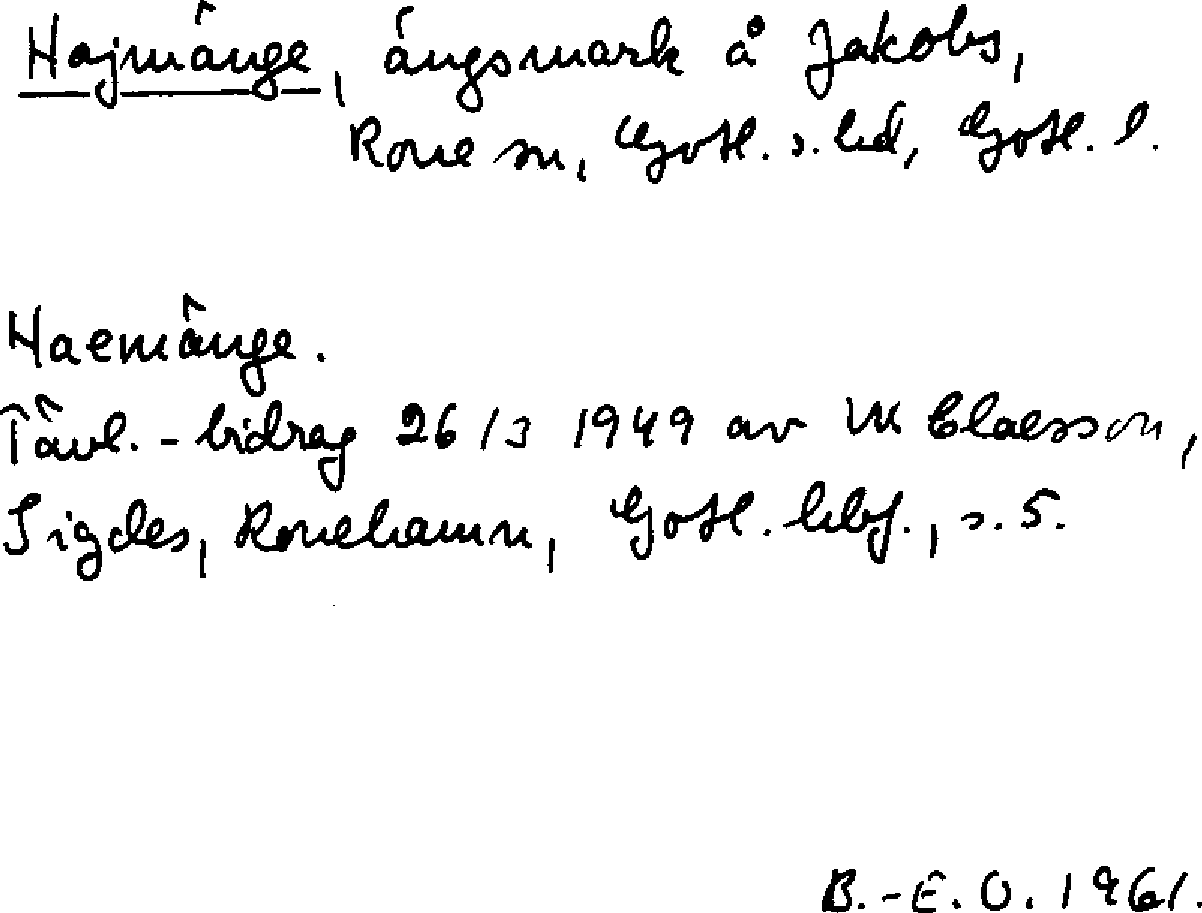 Hajmänge, ängsmark å Jakobs,
Rone sn, Gotl. s. hd, Gotl. l.
Haemänge.
Tävl.-bidrag 26/3 1949 av W Claesson,
Sigdes, Ronehamn, Gotl. hbf., s. 5.
B.-E. O. 1961.